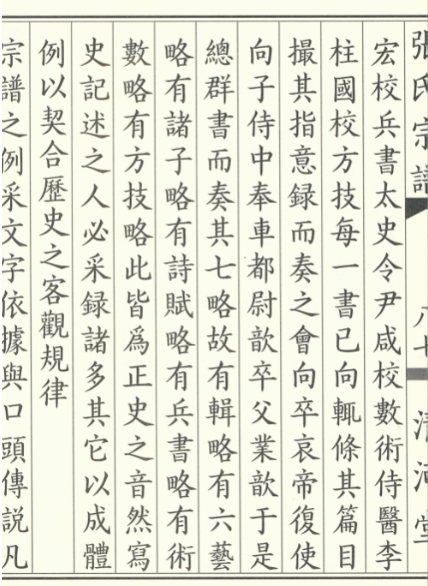 張氏宗譜 八七 清河堂
宏校兵書太史令尹咸校數術侍醫李
柱國校方技每一書已向輒條其篇目
撮其指意録而奏之會向卒哀帝復使
向子侍中奉車都尉歆卒父業歆于是
總群書而奏其七略故有輯略有六藝
略有諸子略有詩賦略有兵書略有術
數略有方技略此皆爲正史之音然寫
史記述之人必采録諸多其它以成體
例以契合歷史之客觀規律
宗譜之例采文字依據與口頭傳説凡